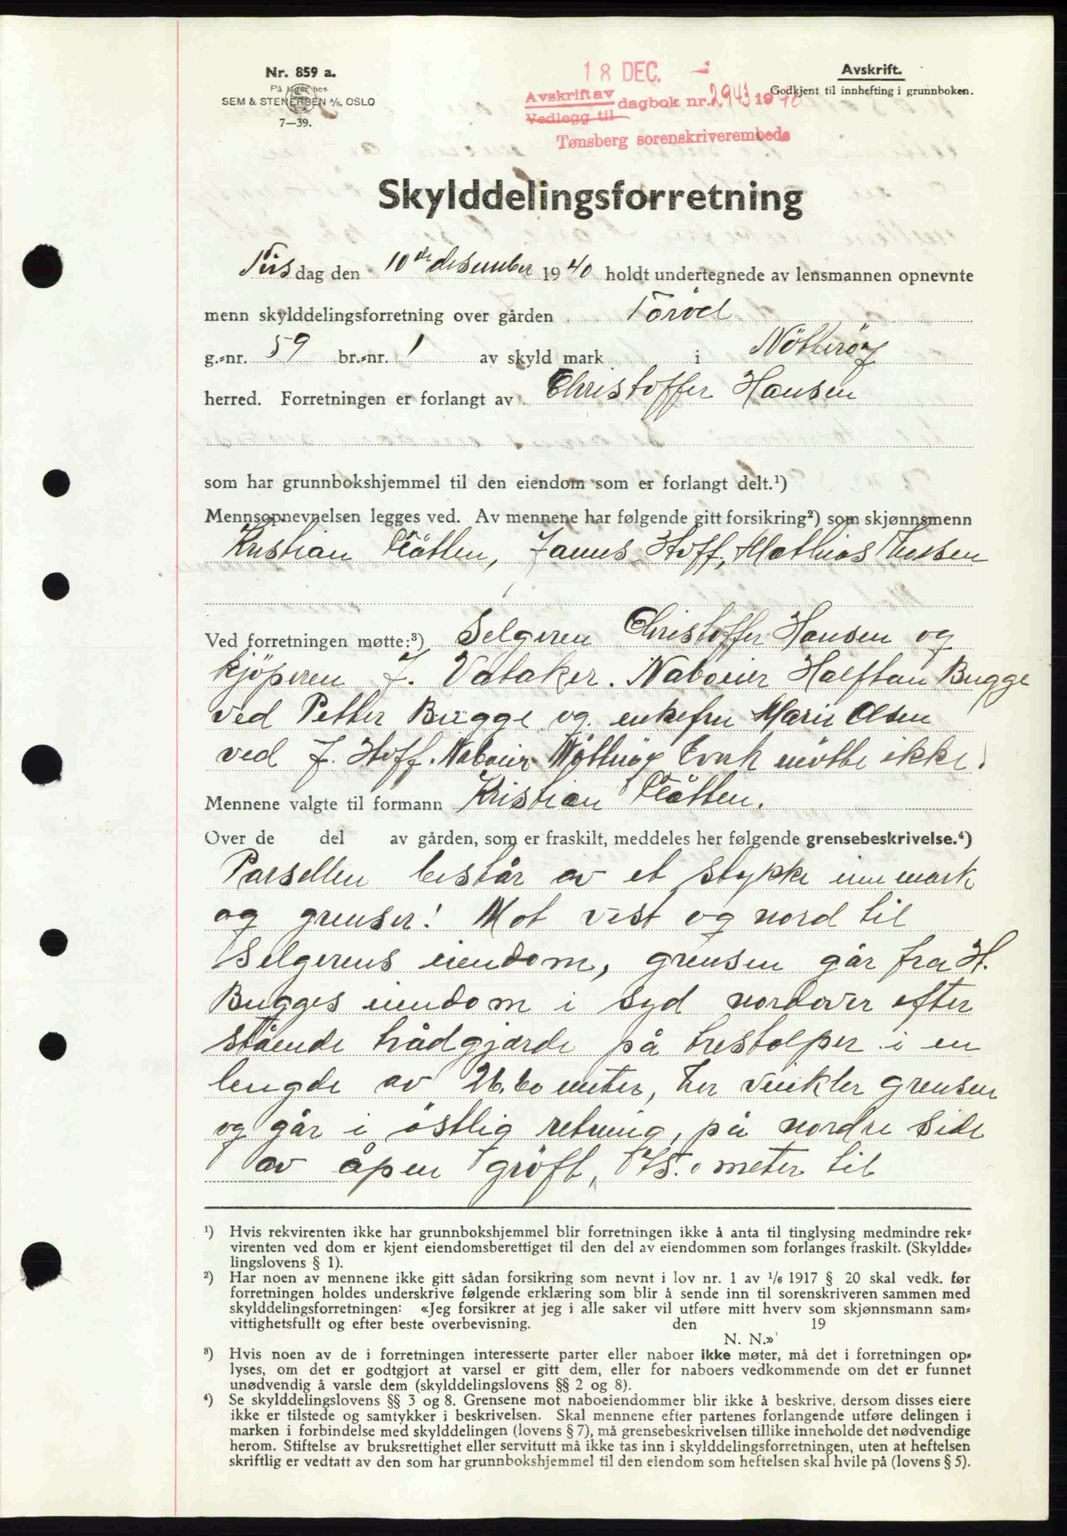 Nr. 859 a.
På lager hos
SEM & STENERSEN A/S, OSLO
7—39.
18 DEC.
Avskrift av
Vedlegg til
dagbok nr. 2943 1940
Tønsberg sorenskriverembede
Avskrift.
Godkjent til innhefting i grunnboken.
Skylddelingsforretning
Tirsdag den 10de desember 1940 holdt undertegnede av lensmannen opnevnte
menn skylddelingsforretning over gården Töröd
g.-nr. 59 br.-nr. 1 av skyld mark i Nötteröy
herred. Forretningen er forlangt av Christoffer Hansen
som har grunnbokshjemmel til den eiendom som er forlangt delt.¹)
Mennsopnevnelsen legges ved. Av mennene har følgende gitt forsikring²) som skjønnsmenn
Kristian Flåtten, James Hoff, Mathias
Ved forretningen møtte:³) Selgeren Christoffer Hansen og
kjöperen J. Vataker. Naboeier Halftan Bugge
ved Petter Bugge og enkefru Marie Olsen
ved J. Hoff. Naboeier Nötteröy møtte ikke.
Mennene valgte til formann Kristian Flåtten.
Over de del av gården, som er fraskilt, meddeles her følgende grensebeskrivelse.⁴)
Parsellen består av et stykke innmark
og grenser: Mot vest og nord til
Selgerens eiendom, grensen går fra H.
Bugges eiendom i syd nordover efter
stående trådgjærde på trestolper i en
lengde av 26,60 meter, her vinkler grensen
og går i östlig retning, på nordre side
av åpen gröft, meter til
¹) Hvis rekvirenten ikke har grunnbokshjemmel blir forretningen ikke å anta til tinglysing medmindre rek-
virenten ved dom er kjent eiendomsberettiget til den del av eiendommen som forlanges fraskilt. (Skyldde-
lingslovens § 1).
²) Har noen av mennene ikke gitt sådan forsikring som nevnt i lov nr. 1 av 1/6 1917 § 20 skal vedk. før
forretningen holdes underskrive følgende erklæring som blir å sende inn til sorenskriveren sammen med
skylddelingsforretningen: «Jeg forsikrer at jeg i alle saker vil utføre mitt hverv som skjønnsmann sam-
vittighetsfullt og efter beste overbevisning. den 19
N. N.»
³) Hvis noen av de i forretningen interesserte parter eller naboer ikke møter, må det i forretningen op-
lyses, om det er godtgjort at varsel er gitt dem, eller for naboers vedkommende om det er funnet
unødvendig å varsle dem (skylddelingslovens §§ 2 og 8).
⁴) Se skylddelingslovens §§ 3 og 8. Grensene mot naboeiendommer blir ikke å beskrive, dersom disses eiere
ikke er tilstede og samtykker i beskrivelsen. Skal mennene efter partenes forlangende utføre delingen i
marken i forbindelse med skylddelingen (lovens § 7), må grensebeskrivelsen tillike inneholde det nødvendige
herom. Stiftelse av bruksrettighet eller servitutt må ikke tas inn i skylddelingsforretningen, uten at heftelsen
skriftlig er vedtatt av den som har grunnbokshjemmel til den eiendom som heftelsen skal hvile på (lovens § 5).